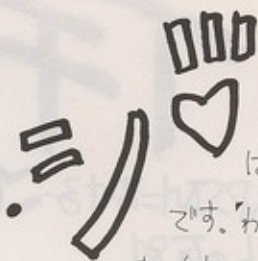 シ
は
です。"わ